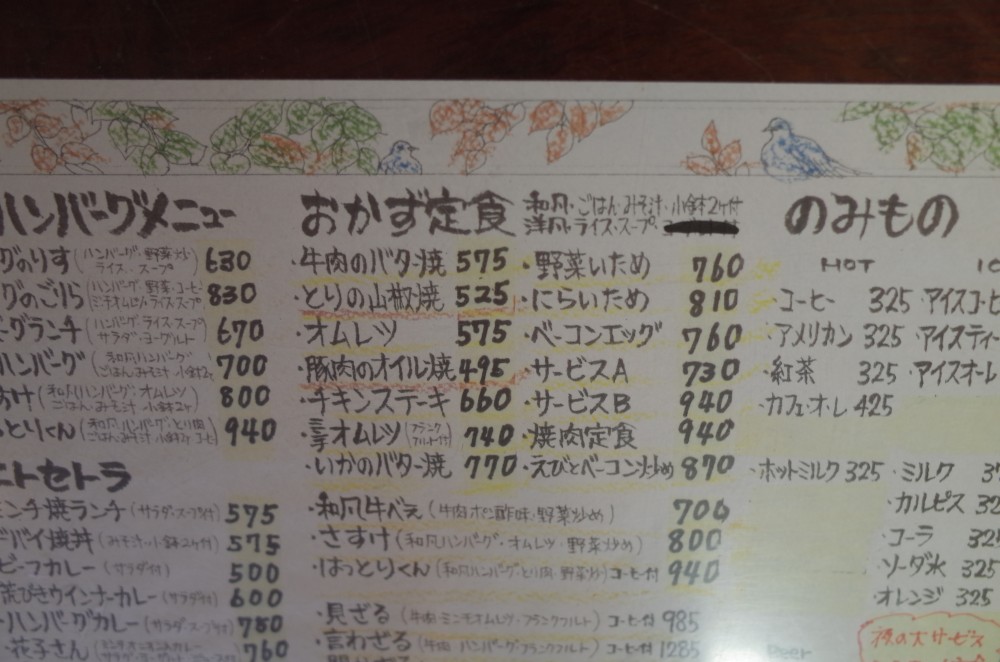 ハンバーグメニュー
グのりす(ハンバーグ・野菜炒 ライス・スープ) 630
グのごりら(ハンバーグ 野菜・コーヒ ミニオムレツ・ライス・スープ 830
ーグランチ(ハンバーグ・ライス・スープ サラダ・ヨーグルト 670
ハンバーグ(和風ハンバーグ ごはん・みそ汁 小鉢2ケ 700
おけ(和風ハンバーグ・オムレツ ごはん・みそ汁 小鉢2ケ) 800
とりくん(和風ハンバーグ・とり肉 ごはん・みそ汁 小鉢2ケ コーヒ 940
エトセトラ
ミンチ焼ランチ(サラダ・スープ付) 575
ドバイ焼丼(みそ汁・小鉢2ケ付) 575
ビーフカレー(サラダ付) 500
荒びきウインナーカレー(サラダ付) 600
ハンバーグカレー(サラダ・スープ付) 750
・花子さん 760
おかず定食
和風・ごはん・みそ汁・小鉢2ケ付
洋風・ライス・スープ・
・牛肉のバター焼 575
・とりの山椒焼 525
・オムレツ 575
・豚肉のオイル焼 495
・チキンステーキ 660
・ミニオムレツ(フランクフルト付) 740
・いかのバター焼 770
・野菜いため 760
・にらいため 810
・ベーコンエッグ 760
・サービスA 730
・サービスB 940
・焼肉定食 940
・えびとベーコン炒め 870
・和風牛べえ(牛肉ポン酢味・野菜炒め) 700
・さすけ(和風ハンバーグ・オムレツ・野菜炒め) 800
・はっとりくん(和風ハンバーグ・とり肉・野菜炒) コーヒー付 940
・見ざる(牛肉・ミニオムレツ・フランクフルト) コーヒ付 985
・言わざる(牛肉 ハンバーグ・フランクフルト) コーヒ付 1285
のみもの
HOT
・コーヒー 325
・アメリカン 325
・紅茶 325
・カフェ・オ・レ 425
・ホットミルク 325
・アイスコーヒ
・アイスティー
・アイスオーレ
・ミルク
・カルピス
・コーラ
・ソーダ水 325
・オレンジ 325
夜の大サービス
Beer